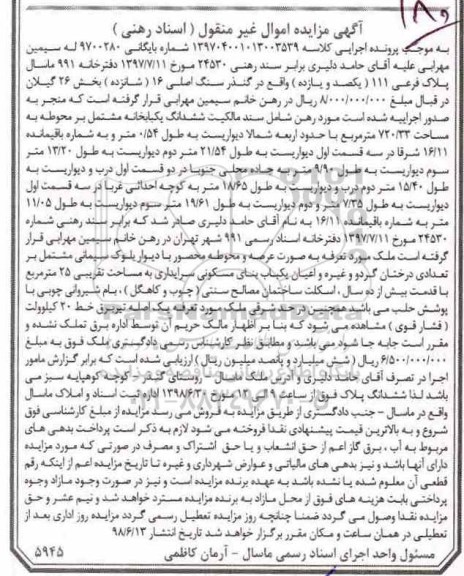 ۱۸۵
آگهی مزایده اموال غیر منقول ( اسناد رهنی )
به موجب پرونده اجرایی کلاسه ۱۳۹۷۰۴۰۰۱۰۱۳۰۰۳۵۳۹ شماره بایگانی ۹۷۰۰۲۸۰ له سیمین
مهرابی علیه آقای حامد دلیری برابر سند رهنی ۲۴۵۳۰ مورخ ۱۳۹۷/۷/۱۱ دفترخانه ۹۹۱ ماسال
پلاک فرعی ۱۱۱ ( یکصد و یازده ) واقع در گنذر سنگ اصلی ۱۶ ( شانزده ) بخش ۲۶ گیلان
در قبال مبلغ ۸/۰۰۰/۰۰۰/۰۰۰ ریال در رهن خانم سیمین مهرابی قرار گرفته است که منجر به
صدور اجراییه شده است مورد رهن شامل سند مالکیت ششدانگ یکبابخانه مشتمل بر محوطه به
مساحت ۷۲۰/۳۳ مترمربع با حدود اربعه شمالا دیواریست به طول ۰/۵۴ متر و به شماره باقیمانده
۱۶/۱۱ شرقا در سه قسمت اول دیواریست به طول ۲۱/۵۴ متر دوم دیواریست به طول ۱۳/۲۰ متر
سوم دیواریست به طول متر به جاده محلی جنوبا در دو قسمت اول درب و دیواریست به
طول ۱۵/۴۰ متر دوم درب و دیواریست به طول ۱۸/۶۵ متر به کوچه احداثی غربا در سه قسمت اول
دیواریست به طول ۷/۳۵ متر دوم دیواریست به طول ۱۹/۶۱ متر سوم دیواریست به طول ۱۱/۰۵
متر به شماره باقیمانده ۱۶/۱۱ به نام آقای حامد دلیری صادر شد که برابر سند رهنی شماره
۲۴۵۳۰ مورخ ۱۳۹۷/۷/۱۱ دفترخانه اسناد رسمی ۹۹۱ شهر تهران در رهن خانم سیمین مهرابی قرار
گرفته است ملک مورد تعرفه به صورت عرصه و محوطه محصور با دیوار بلوک سیمانی مشتمل بر
تعدادی درختان گردو و غیره و اعیان یکباب بنای مسکونی سرایداری به مساحت تقریبی ۲۵ مترمربع
با قدمت بیش از ده سال ، اسکلت ساختمان مصالح سنتی ( چوب و کاهگل ) ، بام شیروانی چوبی با
پوشش حلب می باشد همچنین در حد شرقی ملک مورد تعرفه یک اصله تیربرق خط ۲۰ کیلوولت
( فشار قوی ) مشاهده می شود که بنا بر اظهار مالک حریم آن توسط اداره برق تملک نشده و
مقرر است جابه جا شود می باشد و مطابق نظر کارشناس رسمی دادگستری ملک فوق به مبلغ
۶/۵۰۰/۰۰۰/۰۰۰ ریال ( شش میلیارد و پانصد میلیون ریال ) ارزیابی شده است که برابر گزارش مامور
اجرا در تصرف آقای حامد دلیری و آدرس ملک ماسال - روستای گنذر - کوچه کوهپایه سبز می
باشد لذا ششدانگ پلاک فوق از ساعت ۹ الی ۱۲ مورخ ۱۳۹۸/۶/۳۰ اداره ثبت اسناد و املاک ماسال
واقع در ماسال - جنب دادگستری از طریق مزایده به فروش می رسد مزایده از مبلغ کارشناسی فوق
شروع و به بالاترین قیمت پیشنهادی نقدا فروخته می شود لازم به ذکر است پرداخت بدهی های
مربوط به آب ، برق گاز اعم از حق انشعاب و یا حق اشتراک و مصرف در صورتی که مورد مزایده
دارای آنها باشد و نیز بدهی های مالیاتی و عوارض شهرداری و غیره تا تاریخ مزایده اعم از اینکه رقم
قطعی آن معلوم شده یا نشده باشد به عهده برنده مزایده است و نیز در صورت وجود مازاد وجوه
پرداختی بابت هزینه های فوق از محل مازاد به برنده مزایده مسترد خواهد شد و نیم عشر و حق
مزایده نقدا وصول می گردد ضمنا چنانچه روز مزایده تعطیل رسمی گردد مزایده روز اداری بعد از
تعطیلی در همان ساعت و مکان مقرر برگزار خواهد شد تاریخ انتشار ۹۸/۶/۱۳
مسئول واحد اجرای اسناد رسمی ماسال - آرمان کاظمی ۵۹۴۵